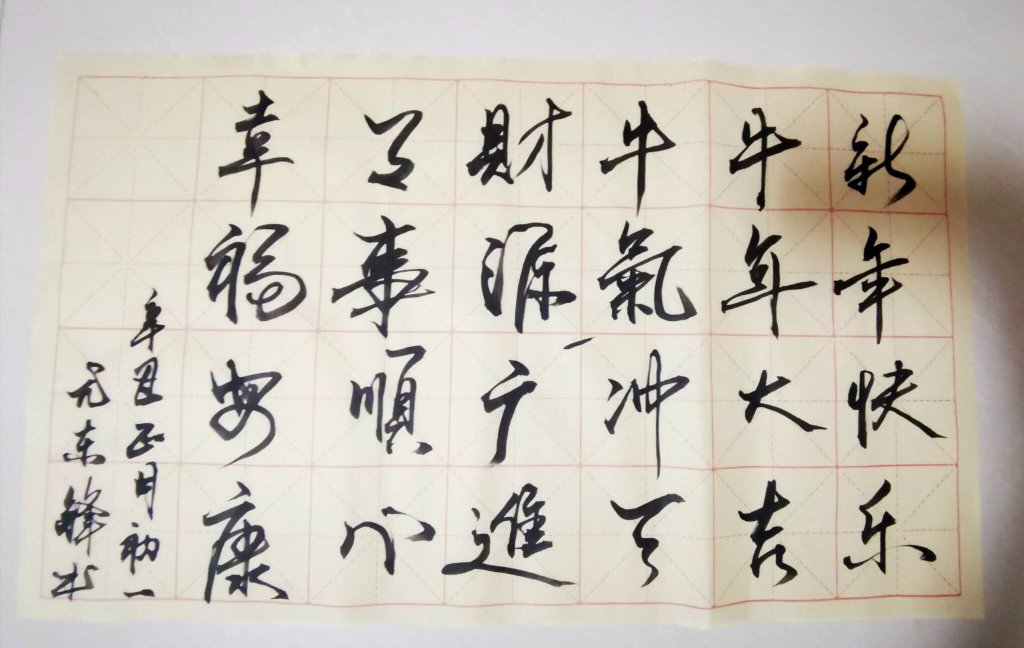 新年快乐
牛年大吉
牛气冲天
財源广進
万事順心
幸福安康
辛丑正月初一
尤东鋒书